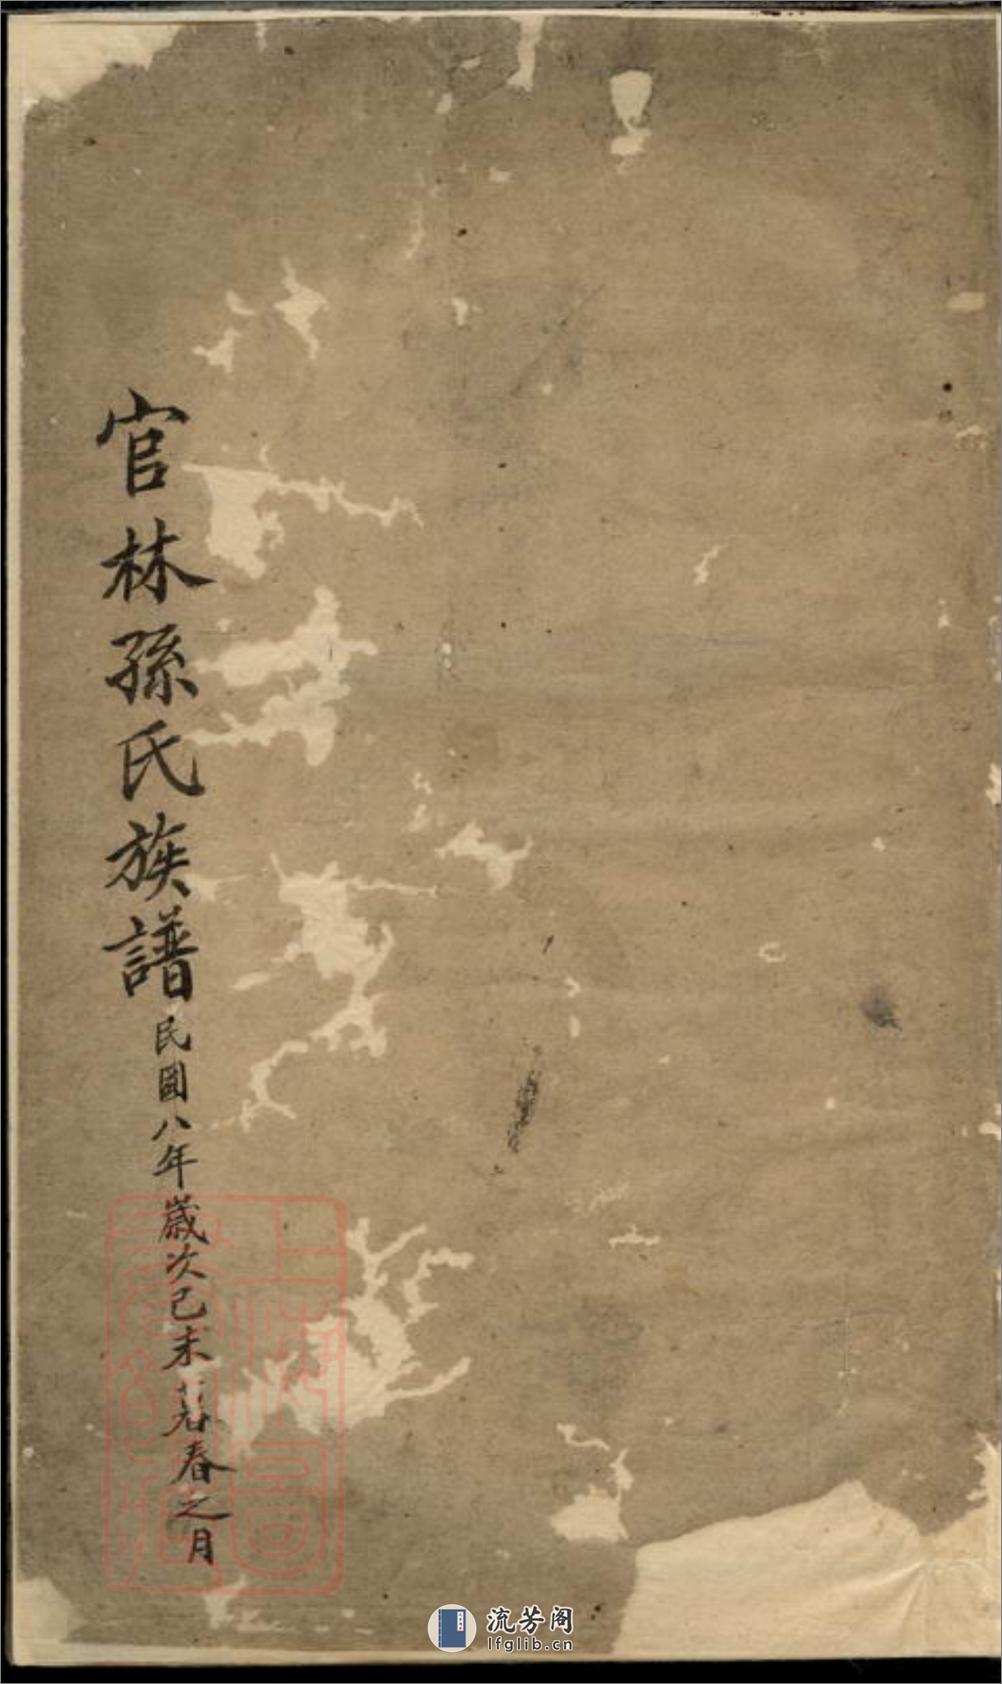 官林孫氏族譜
民國八年歲次己未暮春之月
上海圖書館藏
流芳阁
lfglib.cn